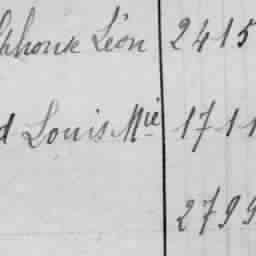 lphonse Léon 2415
d Louis Mie 1711
2799